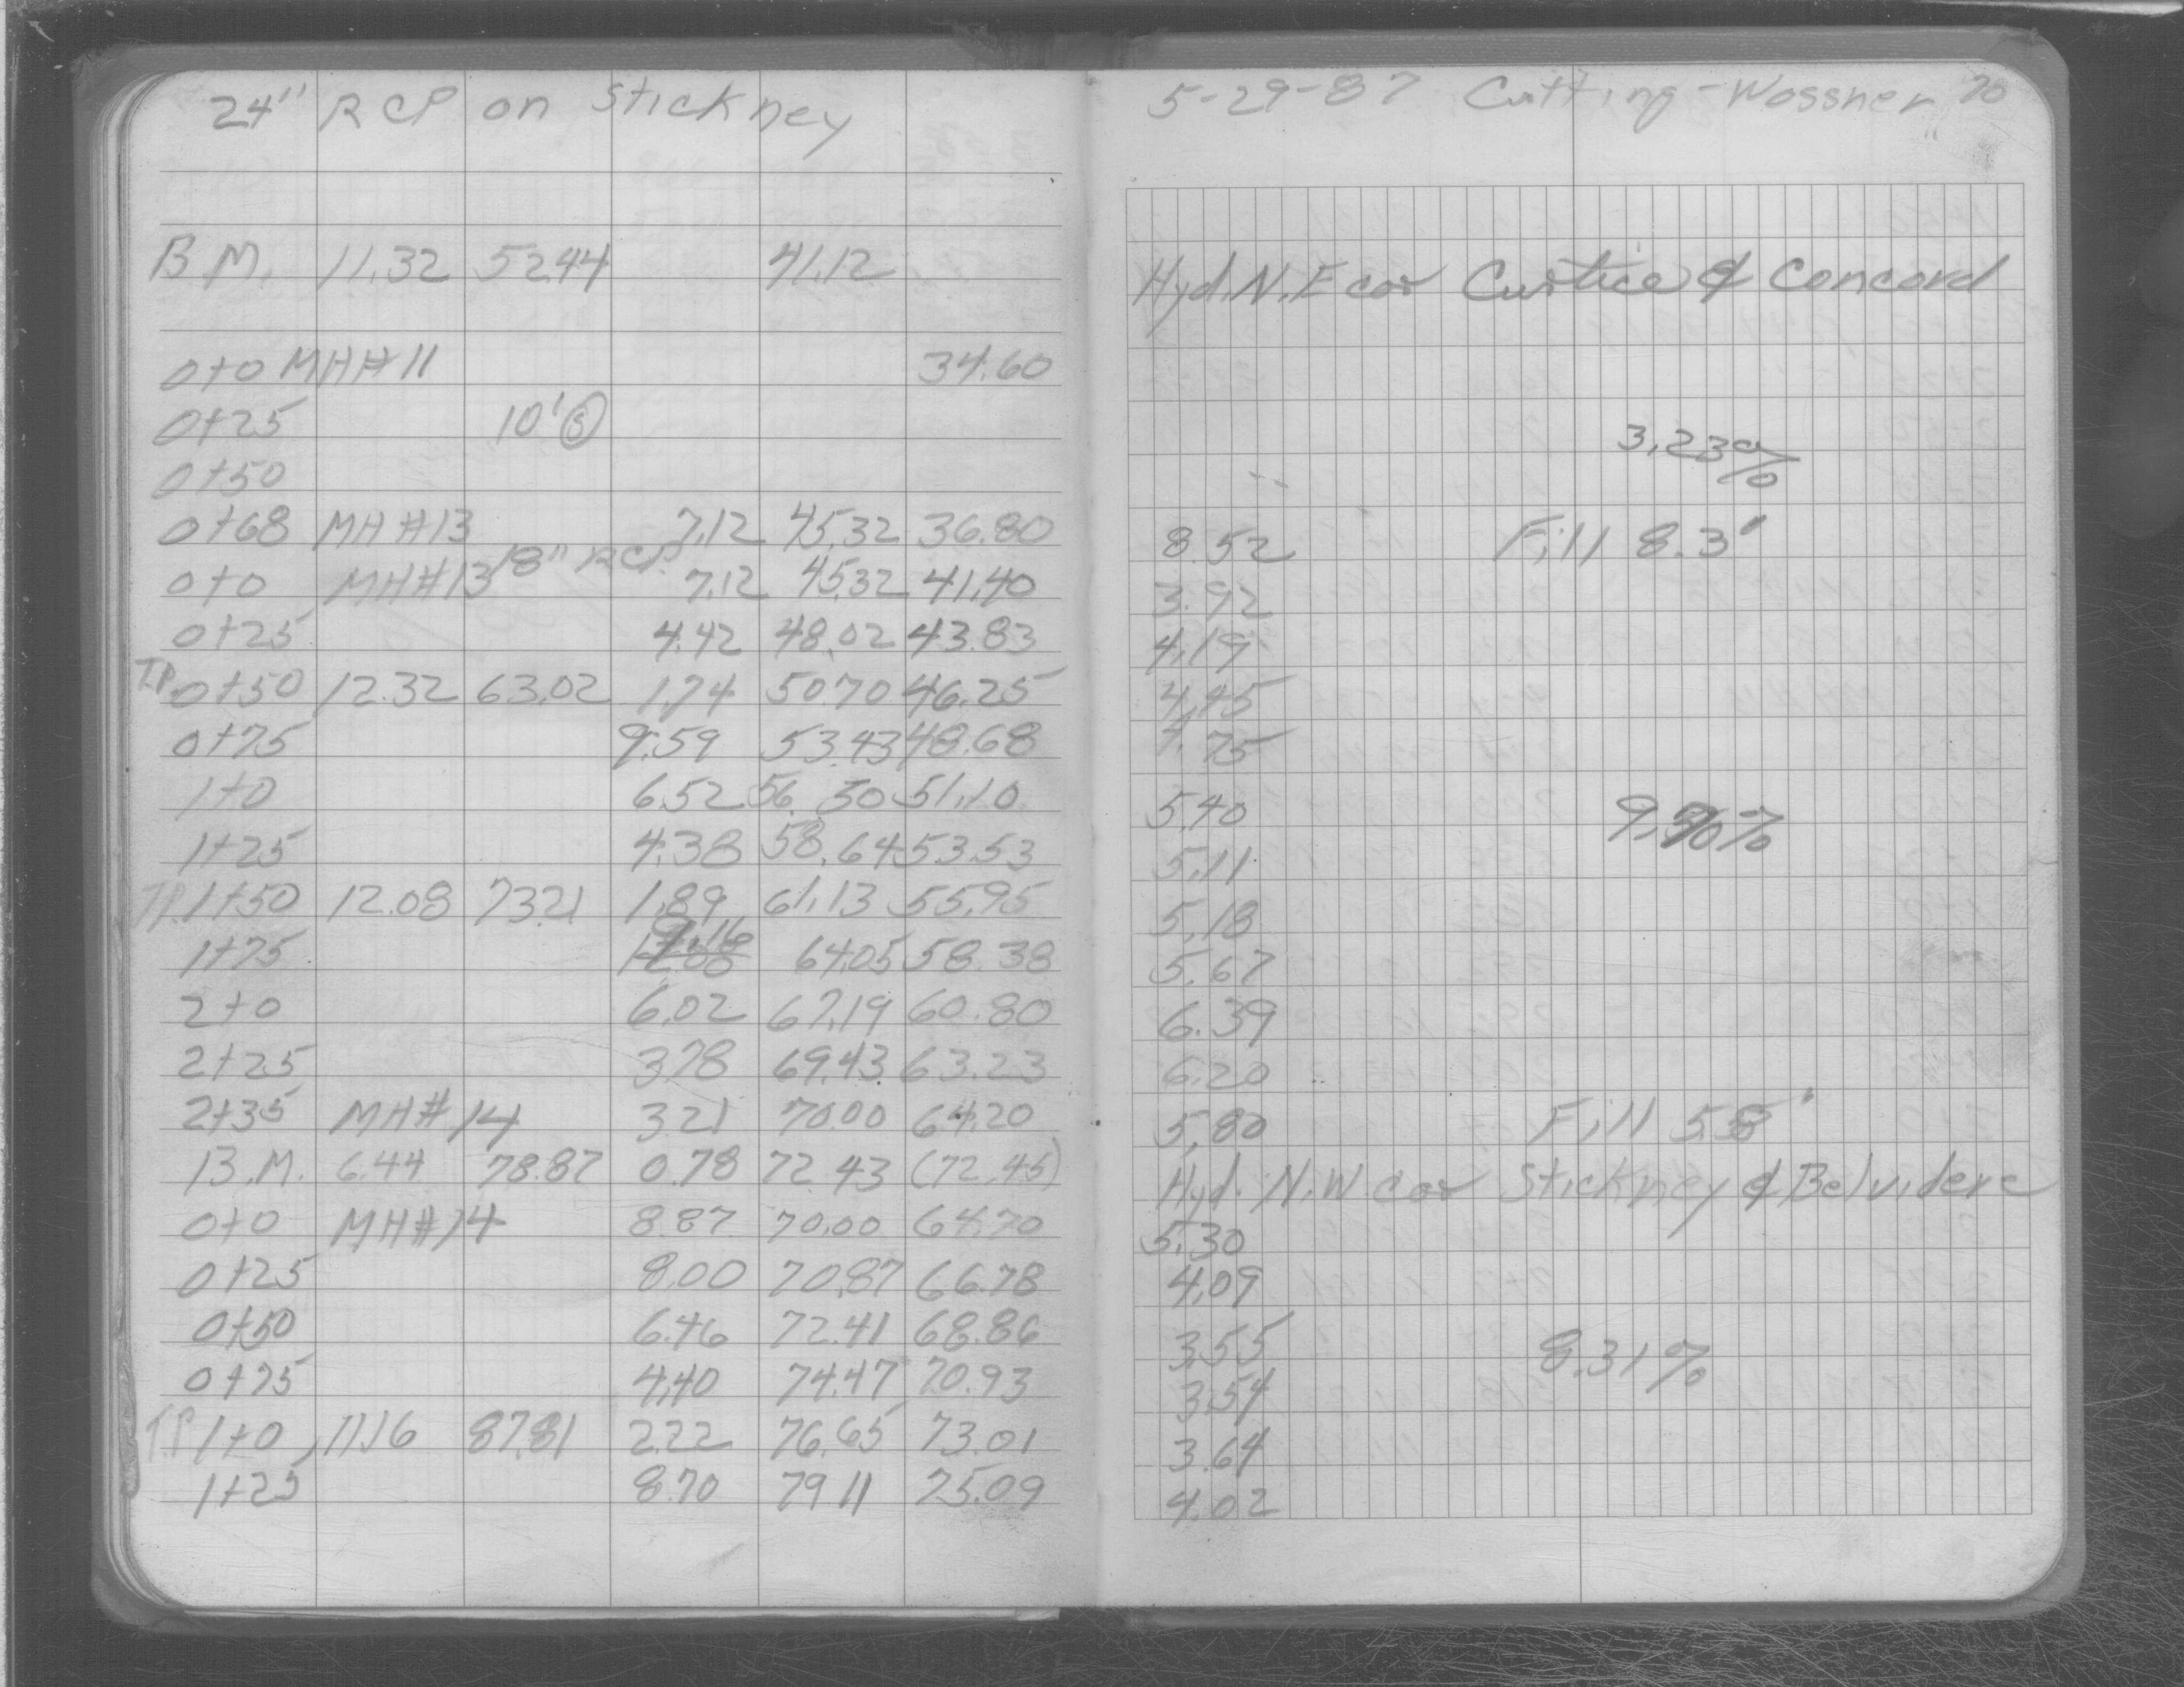 24" RCP on Stickney
5-29-87 Cutting-Wossner 70
B.M. 11.32 52.44 41.12 Hyd. N.E cor Curtice & Concord
0+0 MH#11 34.60
0+25 10' (S)
0+50 3.23%
0+68 MH#13 7.12 45.32 36.80 8.52 Fill 8.3'
18" RCP
0+0 MH#13 7.12 45.32 41.40 3.92
0+25 4.42 48.02 43.83 4.19
T.P. 0+50 12.32 63.02 1.74 50.70 46.25 4.45
0+75 9.59 53.43 48.68 4.75
1+0 6.52 56.50 51.10 5.40
1+25 4.38 58.64 53.53 5.11
T.P. 1+50 12.08 73.21 1.89 61.13 55.95 5.18
1+75 9.16 64.05 58.38 5.67
2+0 6.02 67.19 60.80 6.39
2+25 3.78 69.43 63.23 6.20
2+35 MH#14 3.21 70.00 64.20 5.80 Fill 5.8'
B.M. 6.44 78.87 0.78 72.43 (72.45) Hyd. N.W cor Stickney & Belvidere
0+0 MH#14 8.87 70.00 64.70 5.30
0+25 8.00 70.87 66.78 4.09
0+50 6.46 72.41 68.86 3.55 8.31%
0+75 4.40 74.47 70.93 3.54
T.P. 1+0 11.16 87.81 2.22 76.65 73.01 3.64
1+25 8.70 79.11 75.09 4.02